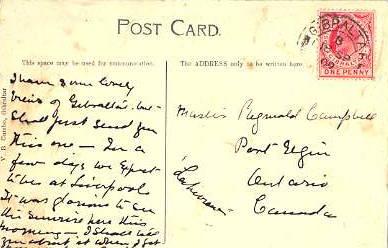 POST CARD.
This space may be used for communication.
The ADDRESS only to be written here
GIBRALTAR
ONE PENNY
V. B. Cumbo, Gibraltar
I have some lovely
views of Gibraltar but
shall just send you
this one - In a
few days we expect
to be at Liverpool
It was glorious to see
the sunrise here this
morning - I shall tell
you about it when I get
Master Reginald Campbell
Port Elgin
Ontario
Canada